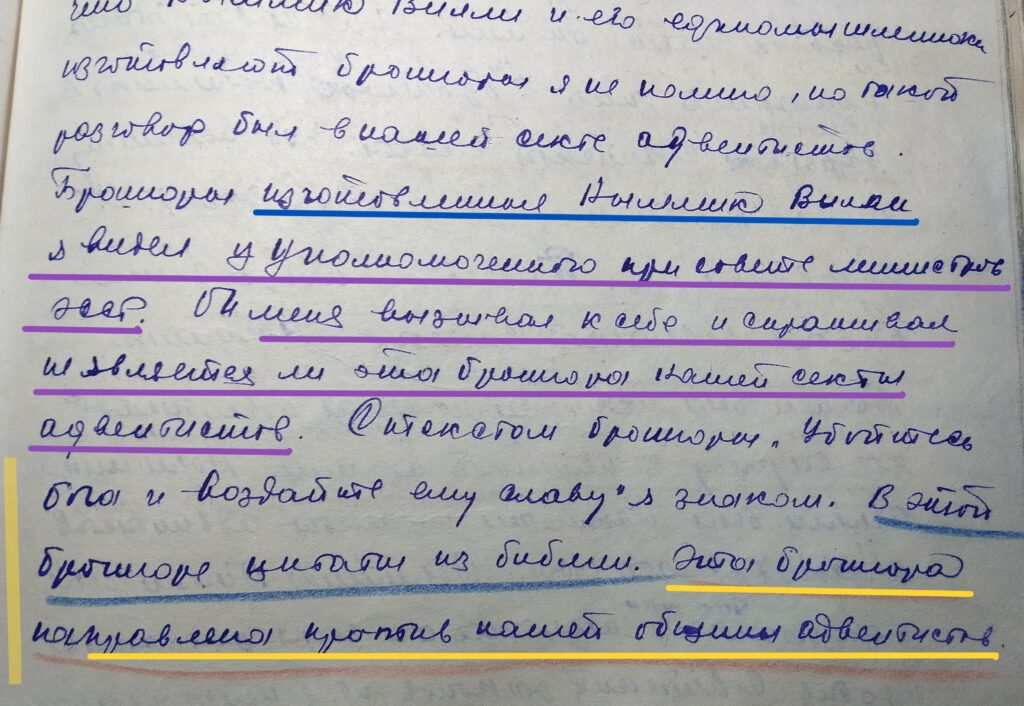 что Кыллик Вилли и его единомышленники
изготовляют брошюры я не помню, но такой
разговор был в нашей секте адвентистов.
Брошюры изготовленыя Кыллик Вилли
я видел у уполномоченного при совете министров
ЭССР. Он меня вызывал к себе и спрашивал
не является ли эта брошюра нашей секты
адвентистов. С текстом брошюры „Убойтесь
бога и воздайте ему славу" я знаком. В этой
брошюре цитаты из библии. Эта брошюра
направлена против нашей общины адвентистов.